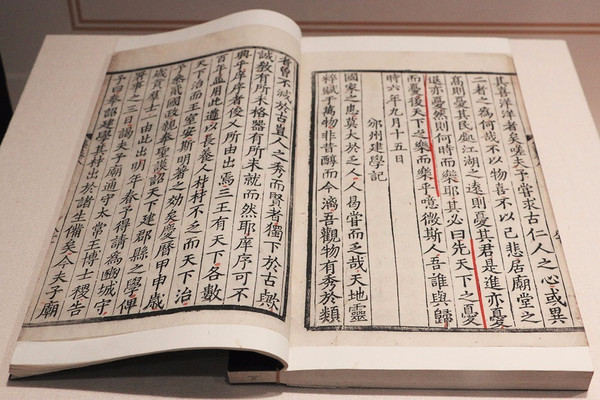 其喜洋洋者矣嗟夫予嘗求古仁人之心或異
二者之為何哉不以物喜不以己悲居廟堂之
高則憂其民處江湖之遠則憂其君是進亦憂
退亦憂然則何時而樂耶其必曰先天下之憂
而憂後天下之樂而樂乎噫微斯人吾誰與歸
時六年九月十五日
邠州建學記
國家之患莫大於乏人人曷嘗而乏哉天地靈
粹賦于萬物非昔醇而今漓吾觀物有秀於類
者曾不減於古豈人之秀而賢者獨下於古歟
誠教有所未格器有所未就而然耶庠序可不
興乎庠序者俊乂所由出焉三王有天下各數
百年並用此道以長養人材材不乏而天下治
天下治而王室安斯明著之効矣慶曆甲申歲
予參貳國政親奉聖謨詔天下建郡縣之學俾
歲貢群士一由此出明年春予得請為豳城守
署事之三日謁夫子廟通守太常王博士稷告
予曰奉詔建學其材出於諸生備矣今夫子廟